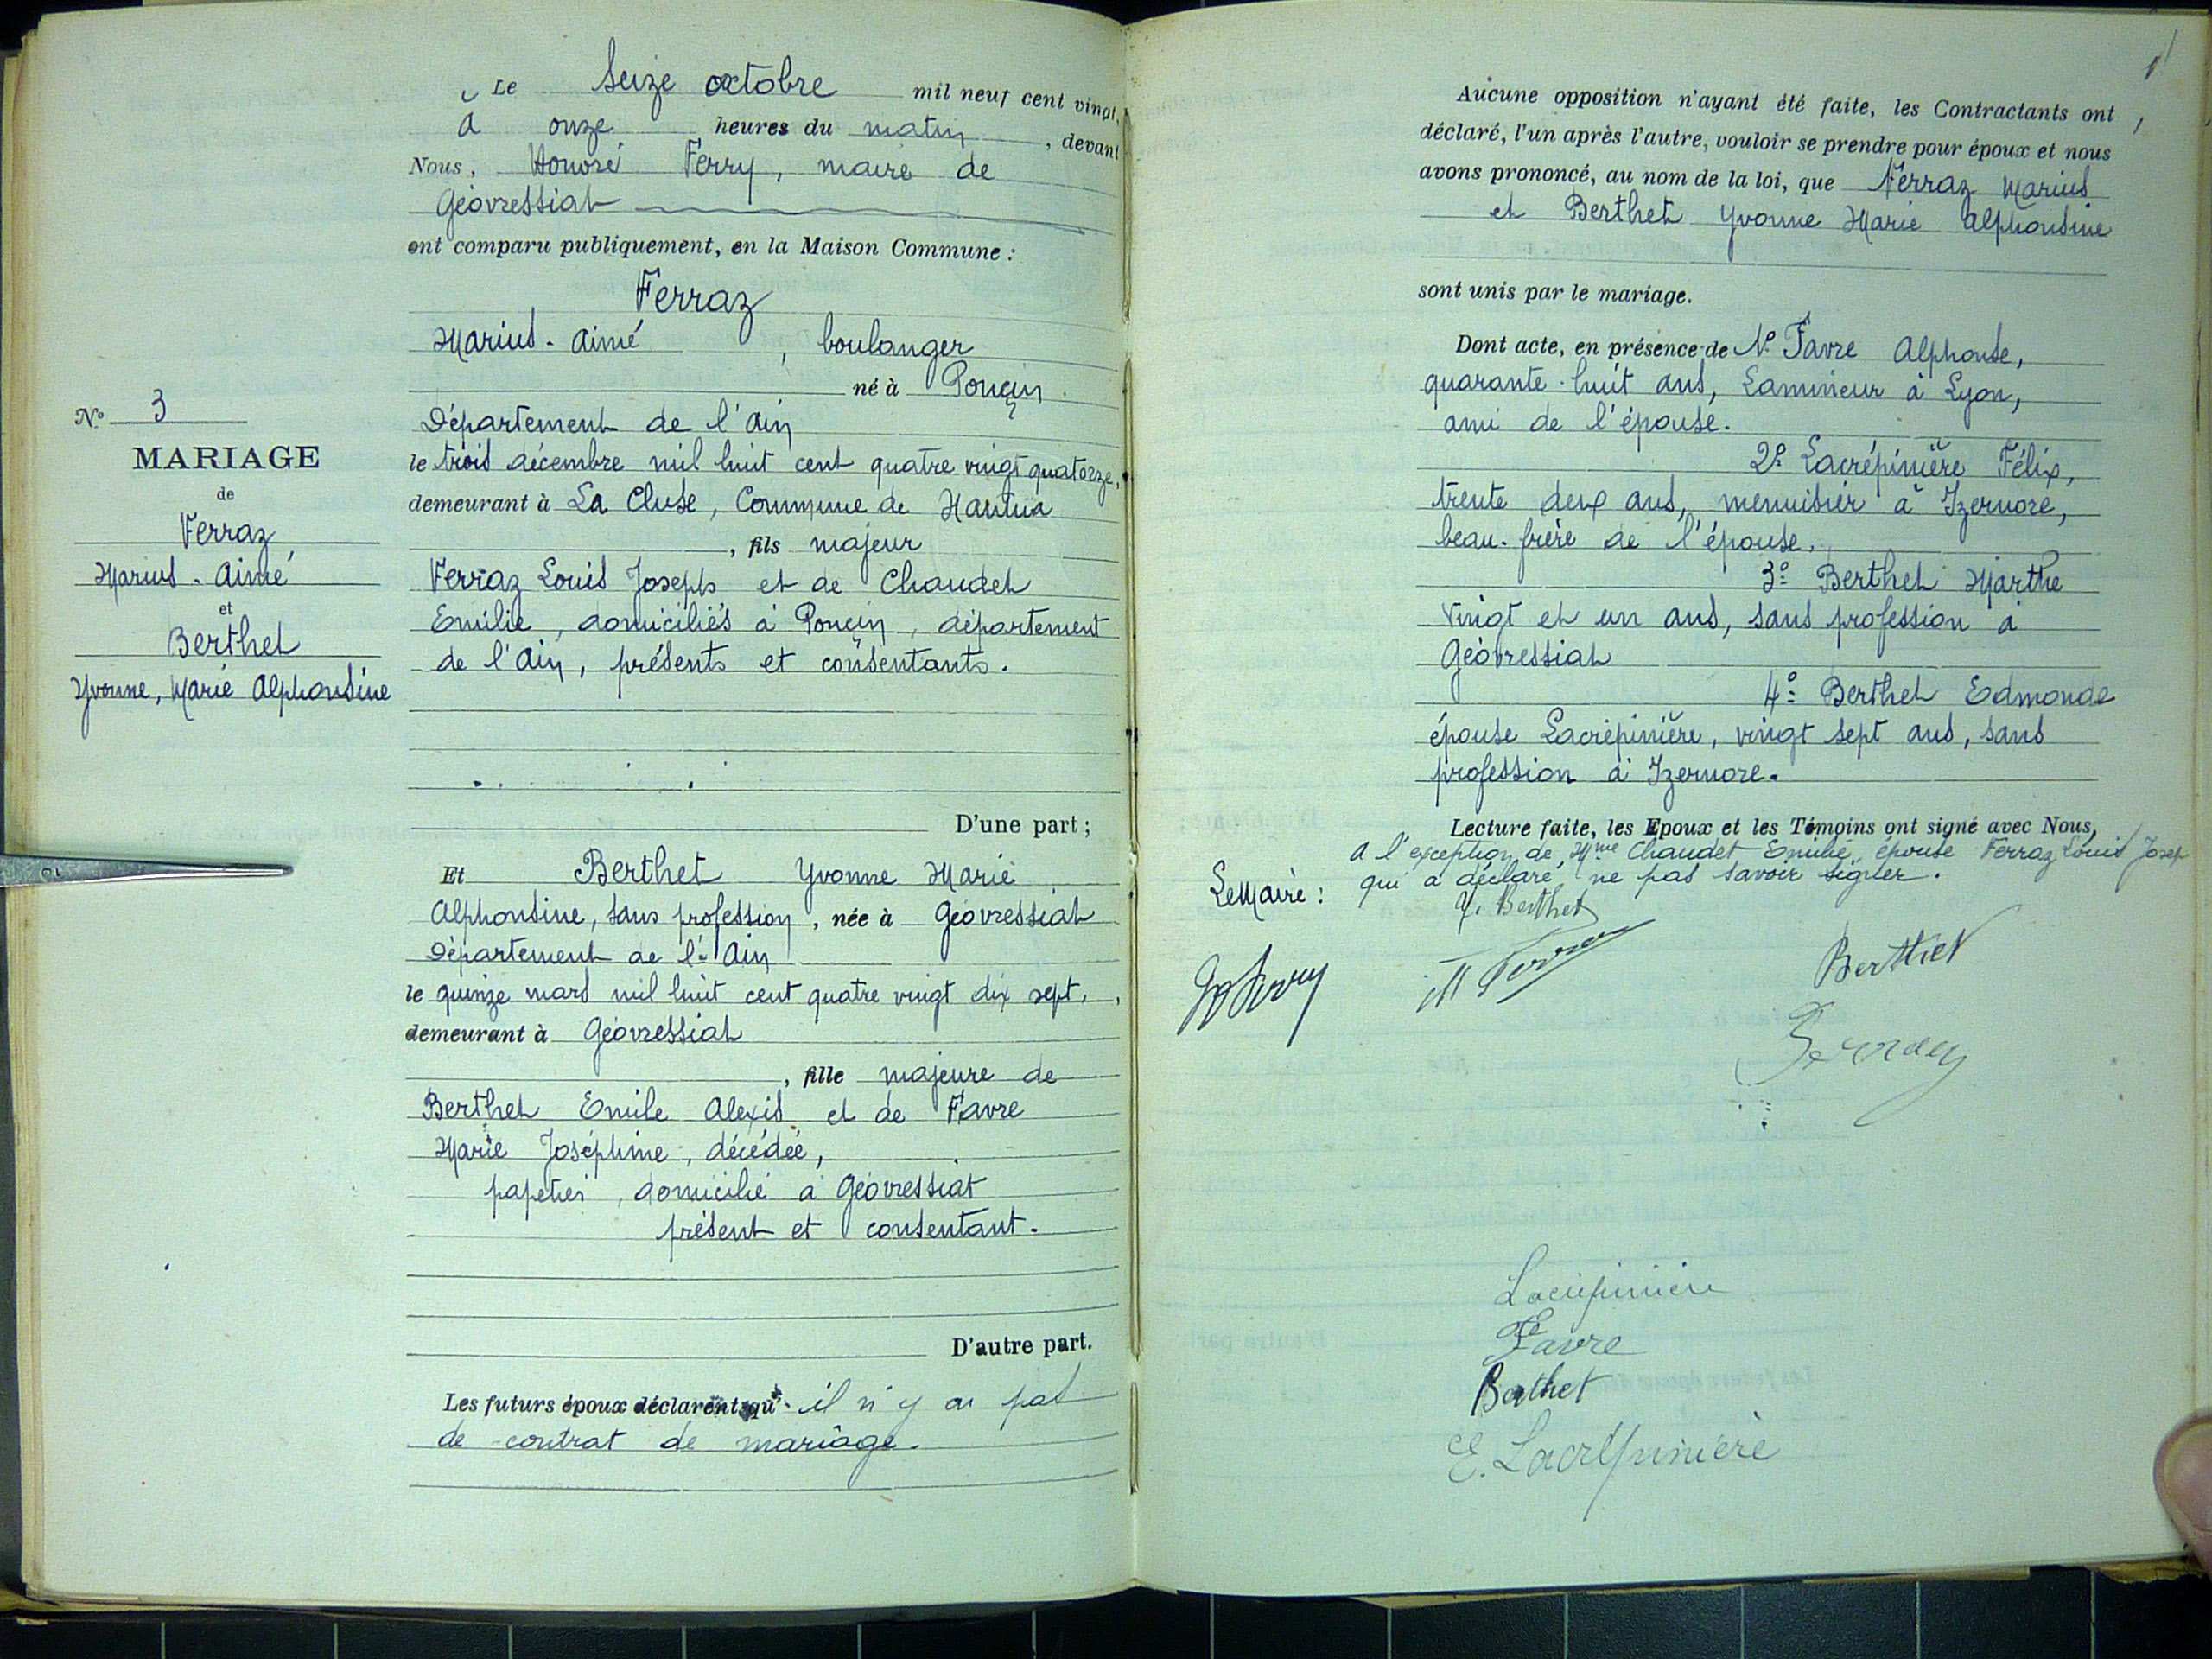 N° 3
MARIAGE
de
Ferraz
Marius - Aimé
et
Berthet
Yvonne, Marie Alphonsine
Le Seize octobre mil neuf cent vingt,
à onze heures du matin, devant
Nous, Honoré Ferry, maire de
Géovressiat
ont comparu publiquement, en la Maison Commune :
Ferraz
Marius - Aimé, boulanger
né à Poncin.
Département de l'Ain
le trois décembre mil huit cent quatre vingt quatorze,
demeurant à La Cluse, Commune de Nantua
, fils majeur
Ferraz Louis Joseph et de Chaudet
Emilie, domiciliés à Poncin, département
de l'Ain, présents et consentants.
D'une part ;
Et Berthet Yvonne Marie
Alphonsine, sans profession, née à Géovressiat
Département de l'Ain
le quinze mars mil huit cent quatre vingt dix sept,
demeurant à Géovressiat
, fille majeure de
Berthet Emile Alexis et de Favre
Marie Joséphine, décédée,
papetier, domicilié à Géovressiat
présent et consentant.
D'autre part.
Les futurs époux déclarent qu'il n'y a pas
de contrat de mariage.
Aucune opposition n'ayant été faite, les Contractants ont
déclaré, l'un après l'autre, vouloir se prendre pour époux et nous
avons prononcé, au nom de la loi, que Ferraz Marius
et Berthet Yvonne Marie Alphonsine
sont unis par le mariage.
Dont acte, en présence de 1° Favre Alphonse,
quarante-huit ans, Lamineur à Lyon,
ami de l'épouse.
2° Lacrépinière Félix,
trente deux ans, menuisier à Izernore,
beau-frère de l'épouse.
3° Berthet Marthe
vingt et un ans, sans profession à
Géovressiat
4° Berthet Edmonde
épouse Lacrépinière, vingt sept ans, sans
profession à Izernore.
Lecture faite, les Epoux et les Témoins ont signé avec Nous,
A l'exception de Mme Chaudet Emilie, épouse Ferraz Louis Josep
qui a déclaré ne pas savoir signer.
Le Maire :
Y. Berthet
M Ferraz
Berthet
Ferraz
Lacrépinière
Favre
Berthet
E. Lacrépinière